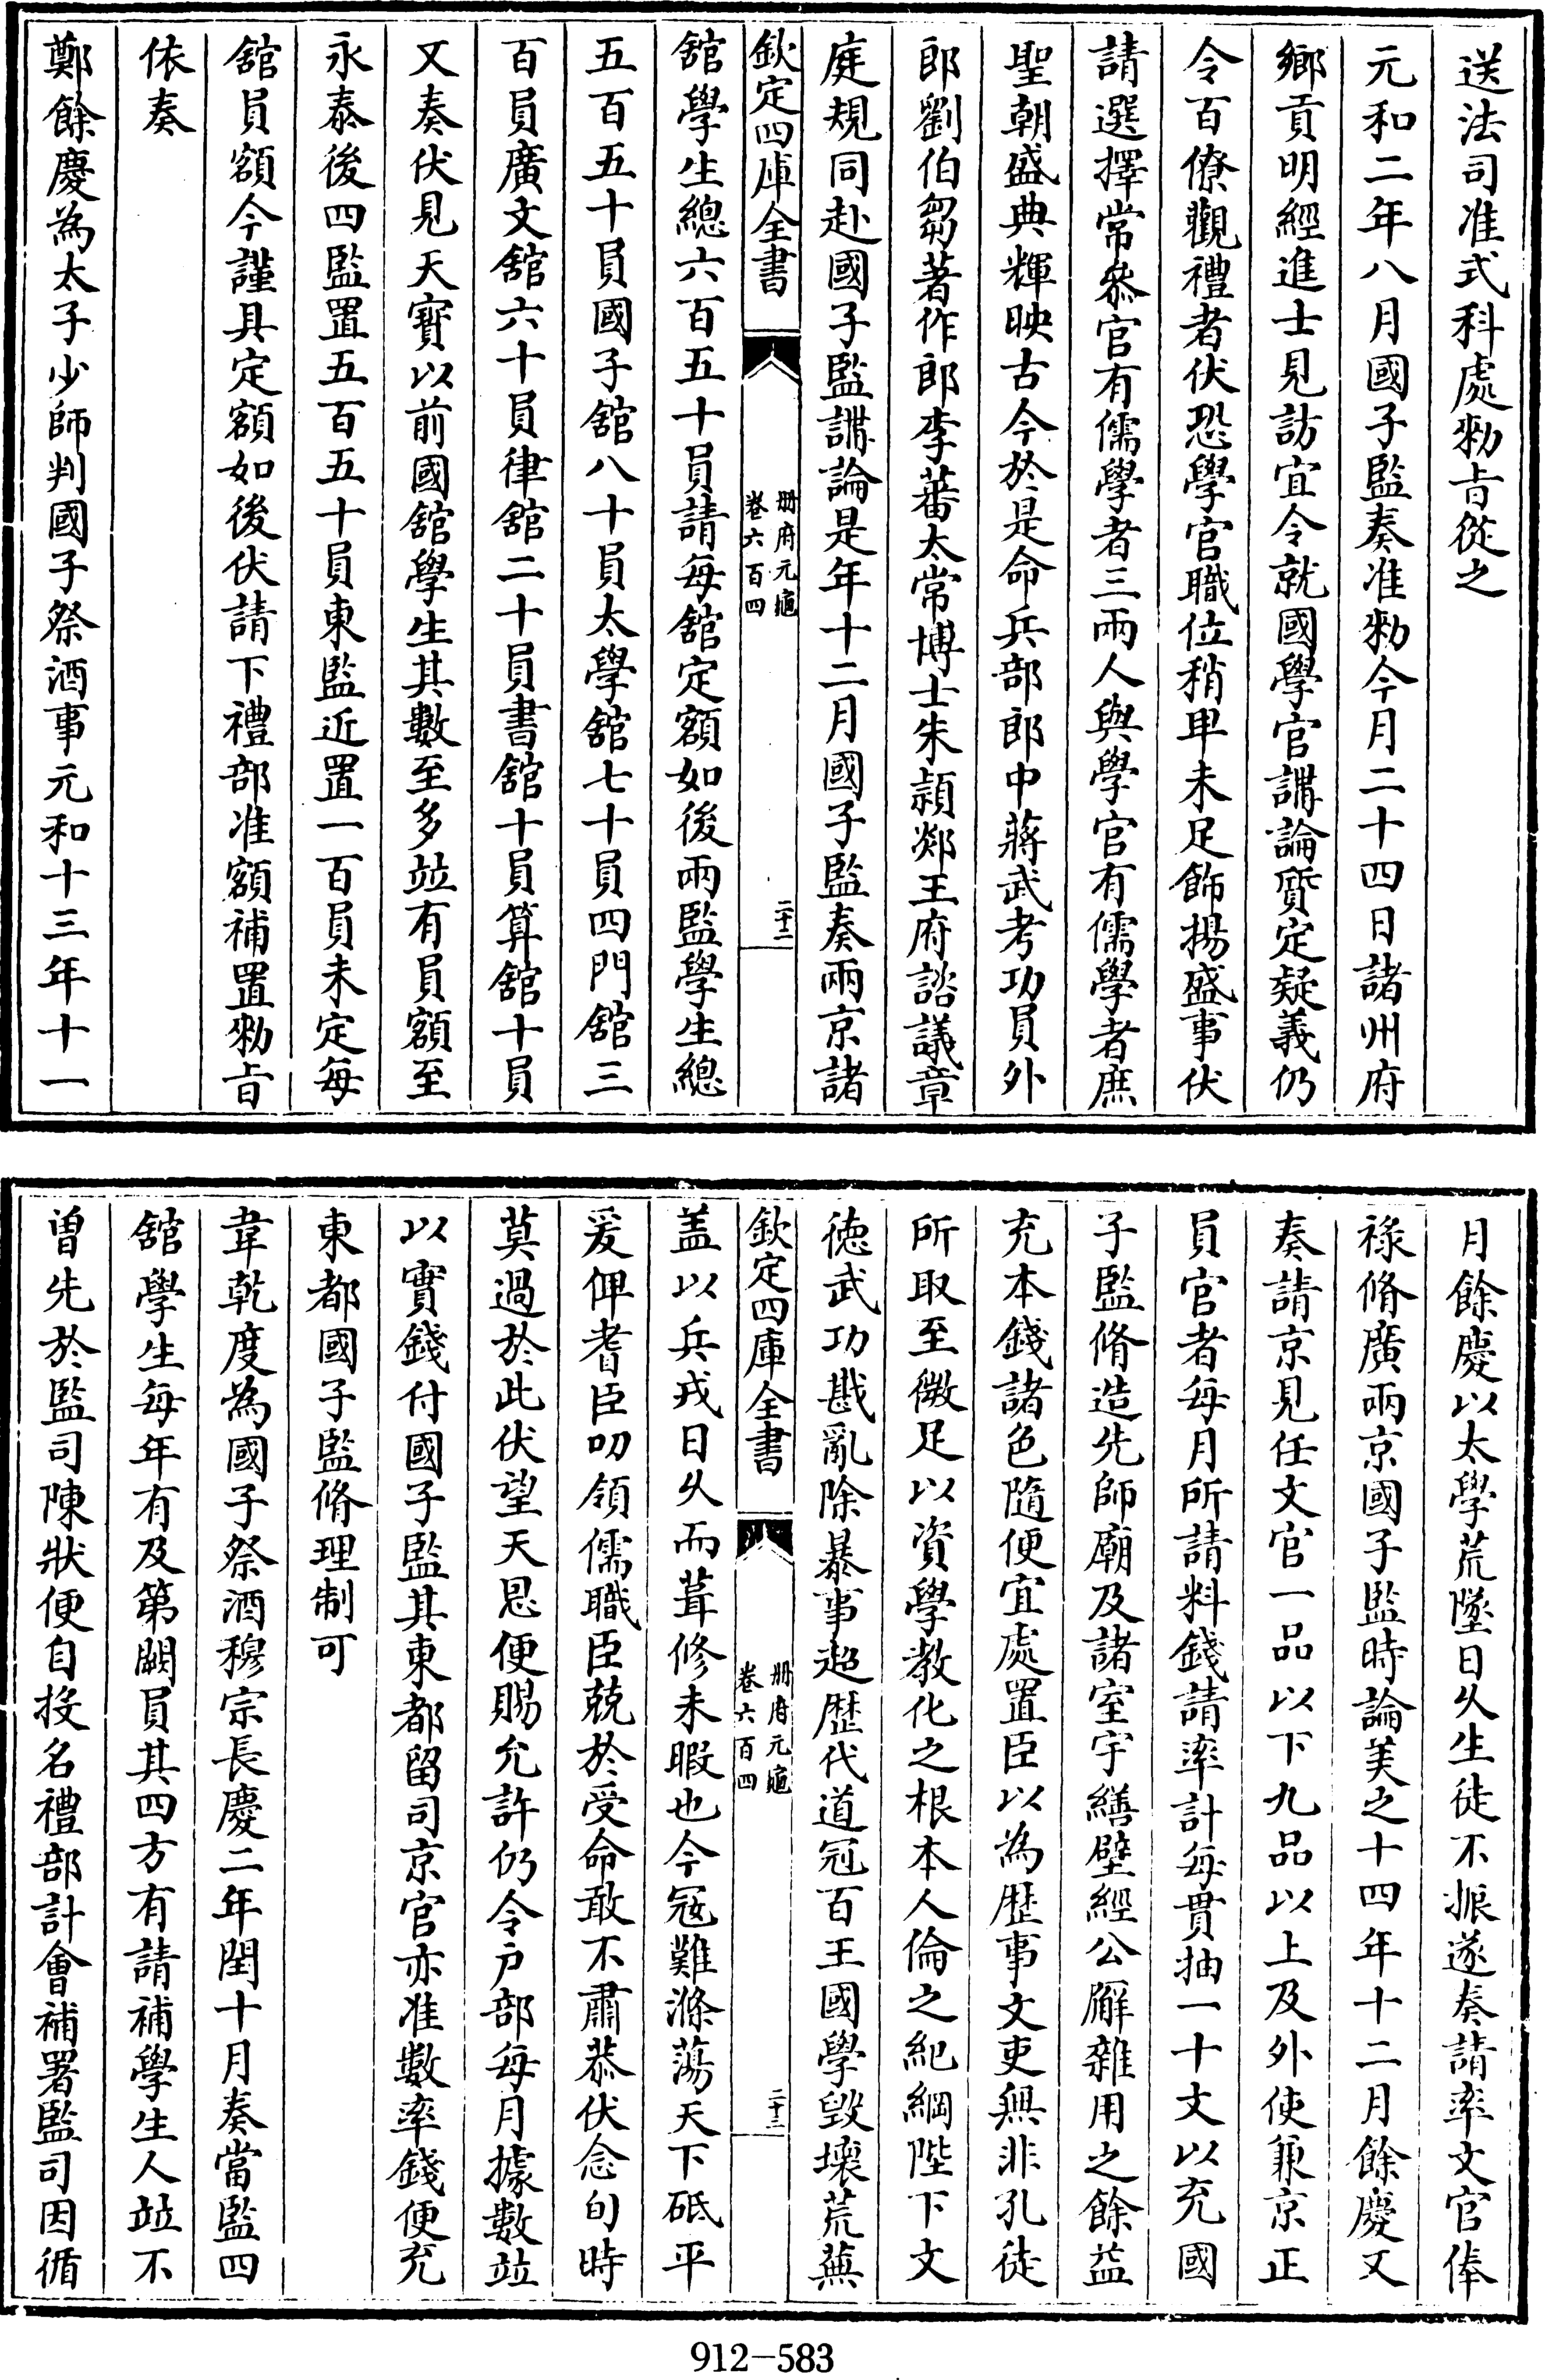 送法司准式科處勑㫖從之
元和二年八月國子監奏准勑今月二十四日諸州府
鄉貢明經進士見訪宜令就國學官講論質定疑義仍
令百僚觀禮者伏恐學官職位稍卑未足飾揚盛事伏
請選擇常叅官有儒學者三兩人與學官有儒學者庶
聖朝盛典輝映古今於是命兵部郎中蔣武考功員外
郎劉伯芻著作郎李蕃太常博士朱頴郯王府諮議章
庭規同赴國子監講論是年十二月國子監奏兩京諸
欽定四庫全書
册府元龜
卷六百四
二十二
舘學生總六百五十員請每舘定額如後兩監學生總
五百五十員國子舘八十員太學舘七十員四門舘三
百員廣文舘六十員律舘二十員書舘十員算舘十員
又奏伏見天寳以前國舘學生其數至多竝有員額至
永泰後四監置五百五十員東監近置一百員未定每
舘員額今謹具定額如後伏請下禮部准額補置勑㫖
依奏
鄭餘慶為太子少師判國子祭酒事元和十三年十一
月餘慶以太學荒墜日乆生徒不振遂奏請率文官俸
祿脩廣兩京國子監時論美之十四年十二月餘慶又
奏請京見任文官一品以下九品以上及外使兼京正
員官者每月所請料錢請率計每貫抽一十文以充國
子監脩造先師廟及諸室宇繕壁經公廨雜用之餘益
充本錢諸色隨便宜處置臣以為歴事文吏無非孔徒
所取至微足以資學教化之根本人倫之紀綱陛下文
徳武功戡亂除暴事超歴代道冠百王國學毀壞荒蕪
欽定四庫全書
册府元龜
卷六百四
二十三
盖以兵戎日乆而葺修未暇也今寇難滌蕩天下砥平
爰俾耆臣叨領儒職臣兢於受命敢不肅恭伏念旬時
莫過於此伏望天恩便賜允許仍令户部每月據數竝
以實錢付國子監其東都留司京官亦准數率錢便充
東都國子監脩理制可
韋乾度為國子祭酒穆宗長慶二年閏十月奏當監四
舘學生每年有及第闕員其四方有請補學生人竝不
曽先於監司陳狀便自投名禮部計會補署監司因循
912-583